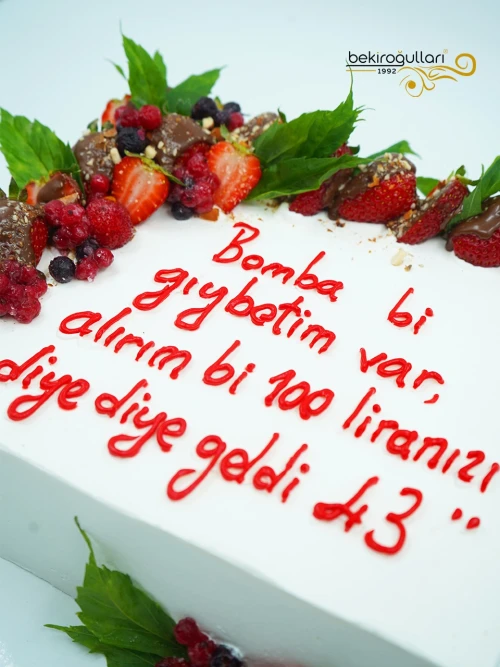 bekiroğulları
1992
Bomba bi
gıybetim var,
alırım bi 100 liranızı
diye diye geldi 43 ..